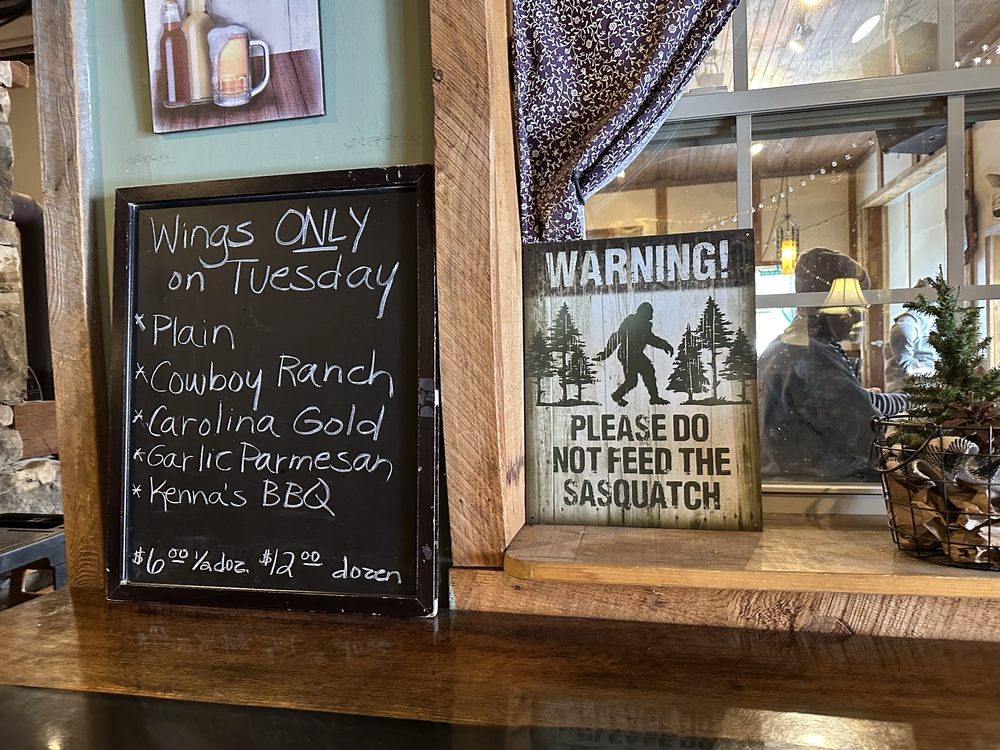 Wings ONLY
on Tuesday
* Plain
* Cowboy Ranch
* Carolina Gold
* Garlic Parmesan
* Kenna's BBQ
$6.00 1/2 doz. $12.00 dozen
WARNING!
PLEASE DO
NOT FEED THE
SASQUATCH